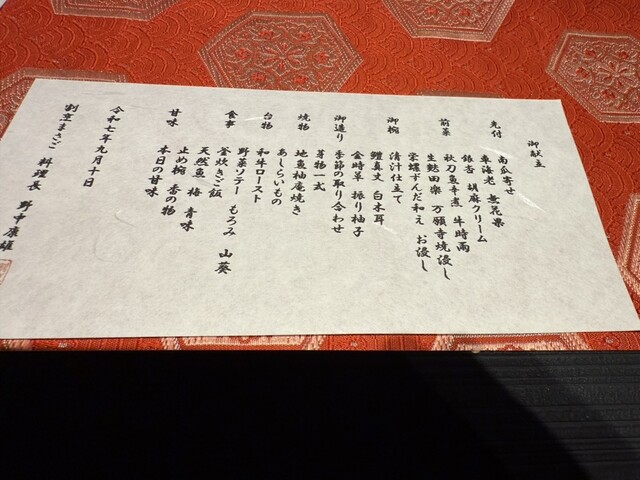 御献立
先付
南瓜寄せ
車海老 無花果
銀杏 胡麻クリーム
前菜
秋刀魚辛煮 牛時雨
生麩田楽 万願寺焼浸し
栄螺ずんだ和え お浸し
御椀
清汁仕立て
鱧真丈 白木耳
金時草 振り柚子
御造り
季節の取り合わせ
芽物一式
焼物
地魚柚庵焼き
あしらいもの
台物
和牛ロースト
野菜ソテー もろみ 山葵
食事
釜炊きご飯
天然魚 梅 青味
止め椀 香の物
甘味
本日の甘味
令和七年九月十日
割烹まさご 料理長 野中康雄